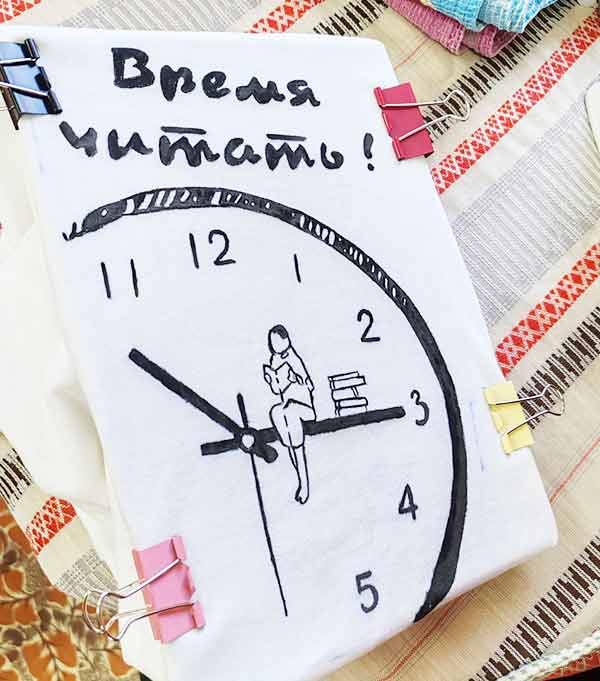 Время
читать!
12
11
1
2
3
4
5